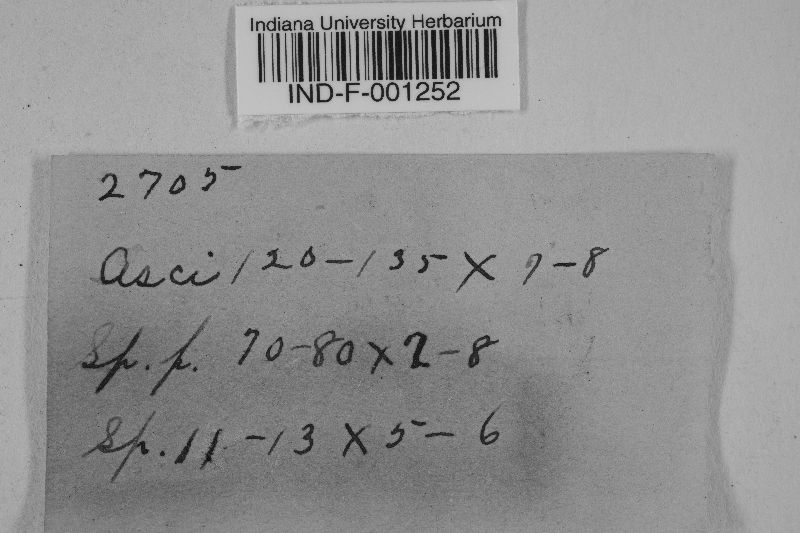 Indiana University Herbarium
IND-F-001252
2705
Asci 120-135 X 7-8
Sp. p. 70-80 x 7-8
Sp. 11-13 X 5-6